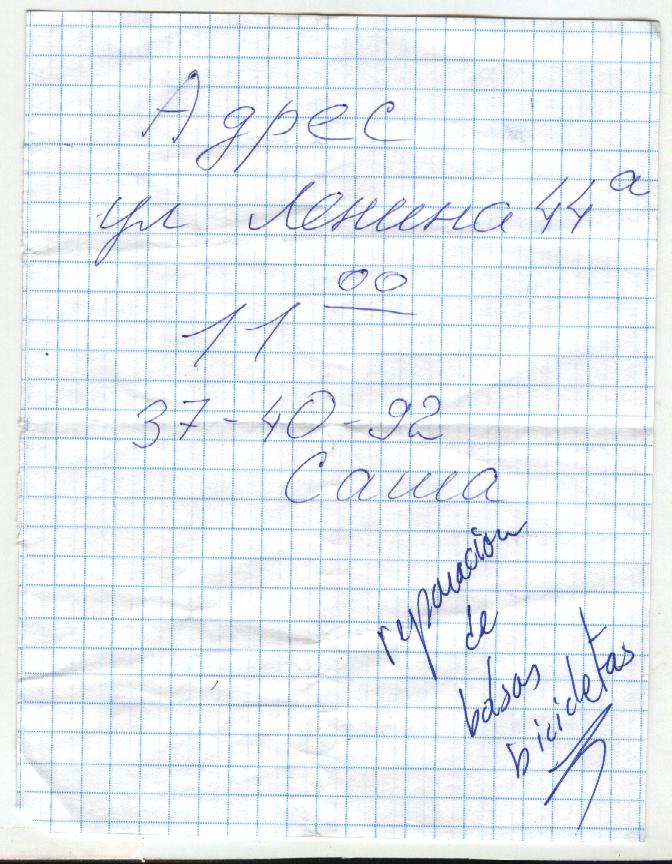 Адрес
ул Ленина 44а
11 00
37-40-92
Саша
reparacion
de
bolsas
bicicletas